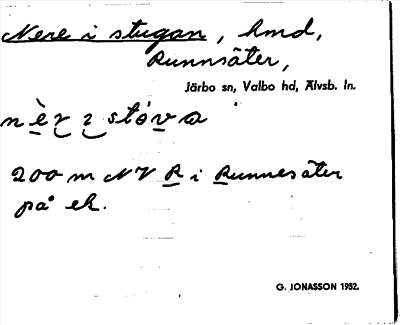 Nere i stugan, hmd,
Runnsäter,
Järbo sn, Valbo hd, Älvsb. ln.
nèr i stóva
200 m NV R i Runnesäter
på ek.
G. JONASSON 1952.